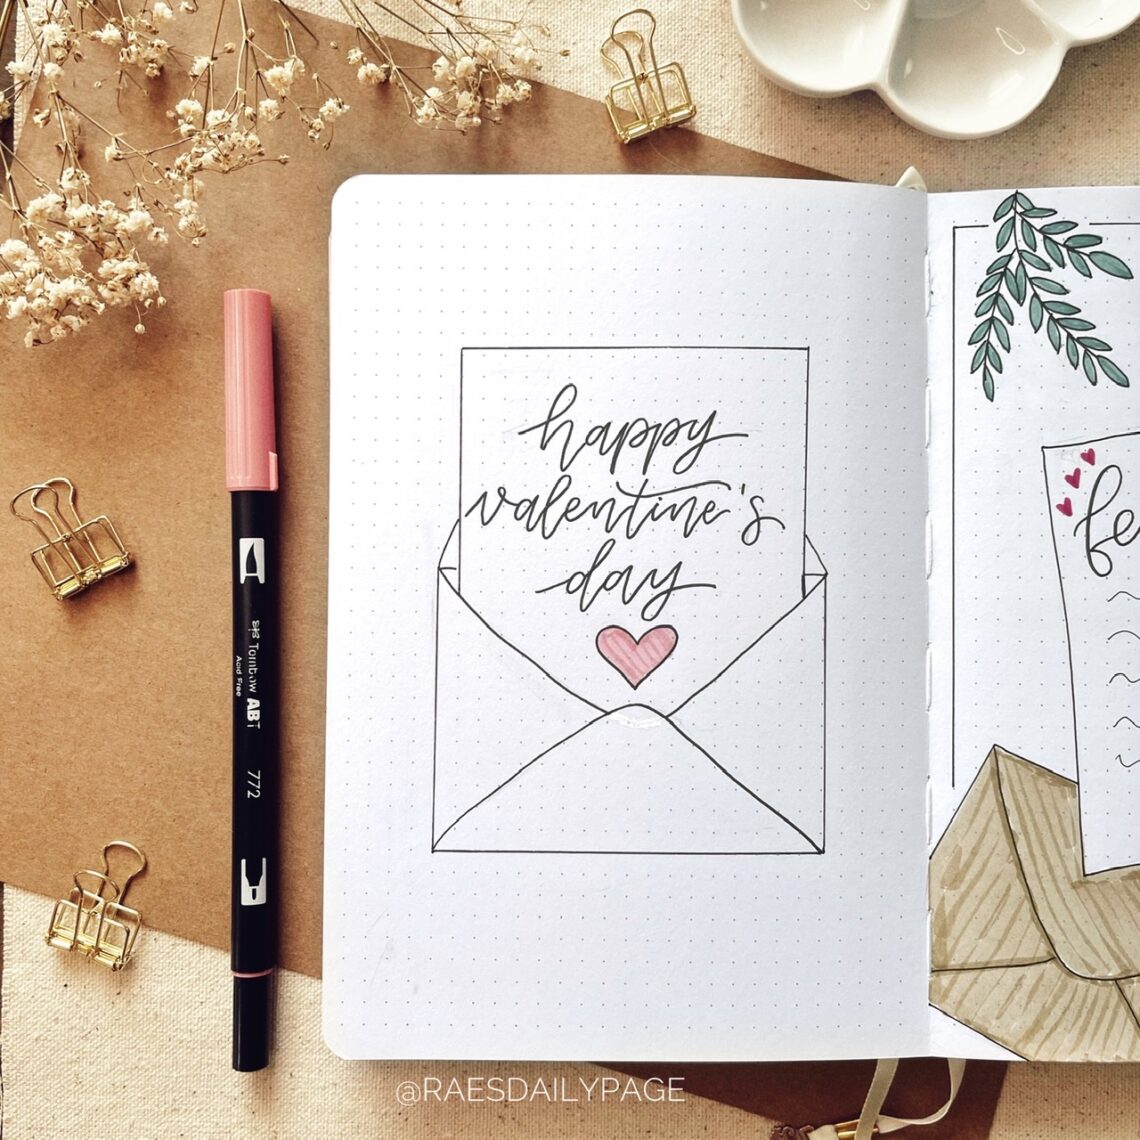 happy
valentine's
day
fe
Tombow ABT
Acid Free
772
@RAESDAILYPAGE